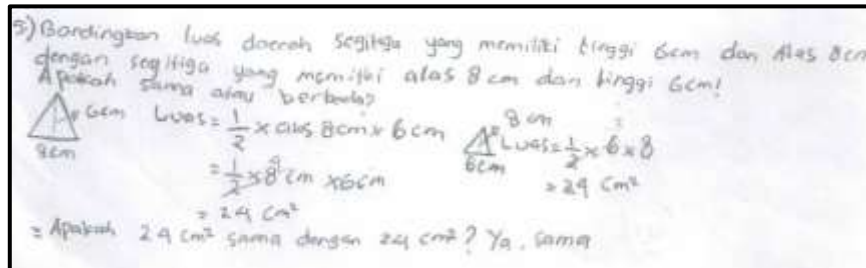 5) Bandingkan luas daerah segitiga yang memiliki tinggi 6cm dan Alas 8cm
dengan segitiga yang memiliki alas 8 cm dan tinggi 6cm!
Apakah sama atau berbeda?
6cm
8cm
Luas = 1/2 x alas 8cm x 6cm
= 1/2 x 8 cm x 6cm
= 24 cm²
8 cm
6cm
Luas = 1/2 x 6 x 8
= 24 cm²
= Apakah 24 cm² sama dengan 24 cm²? Ya, sama